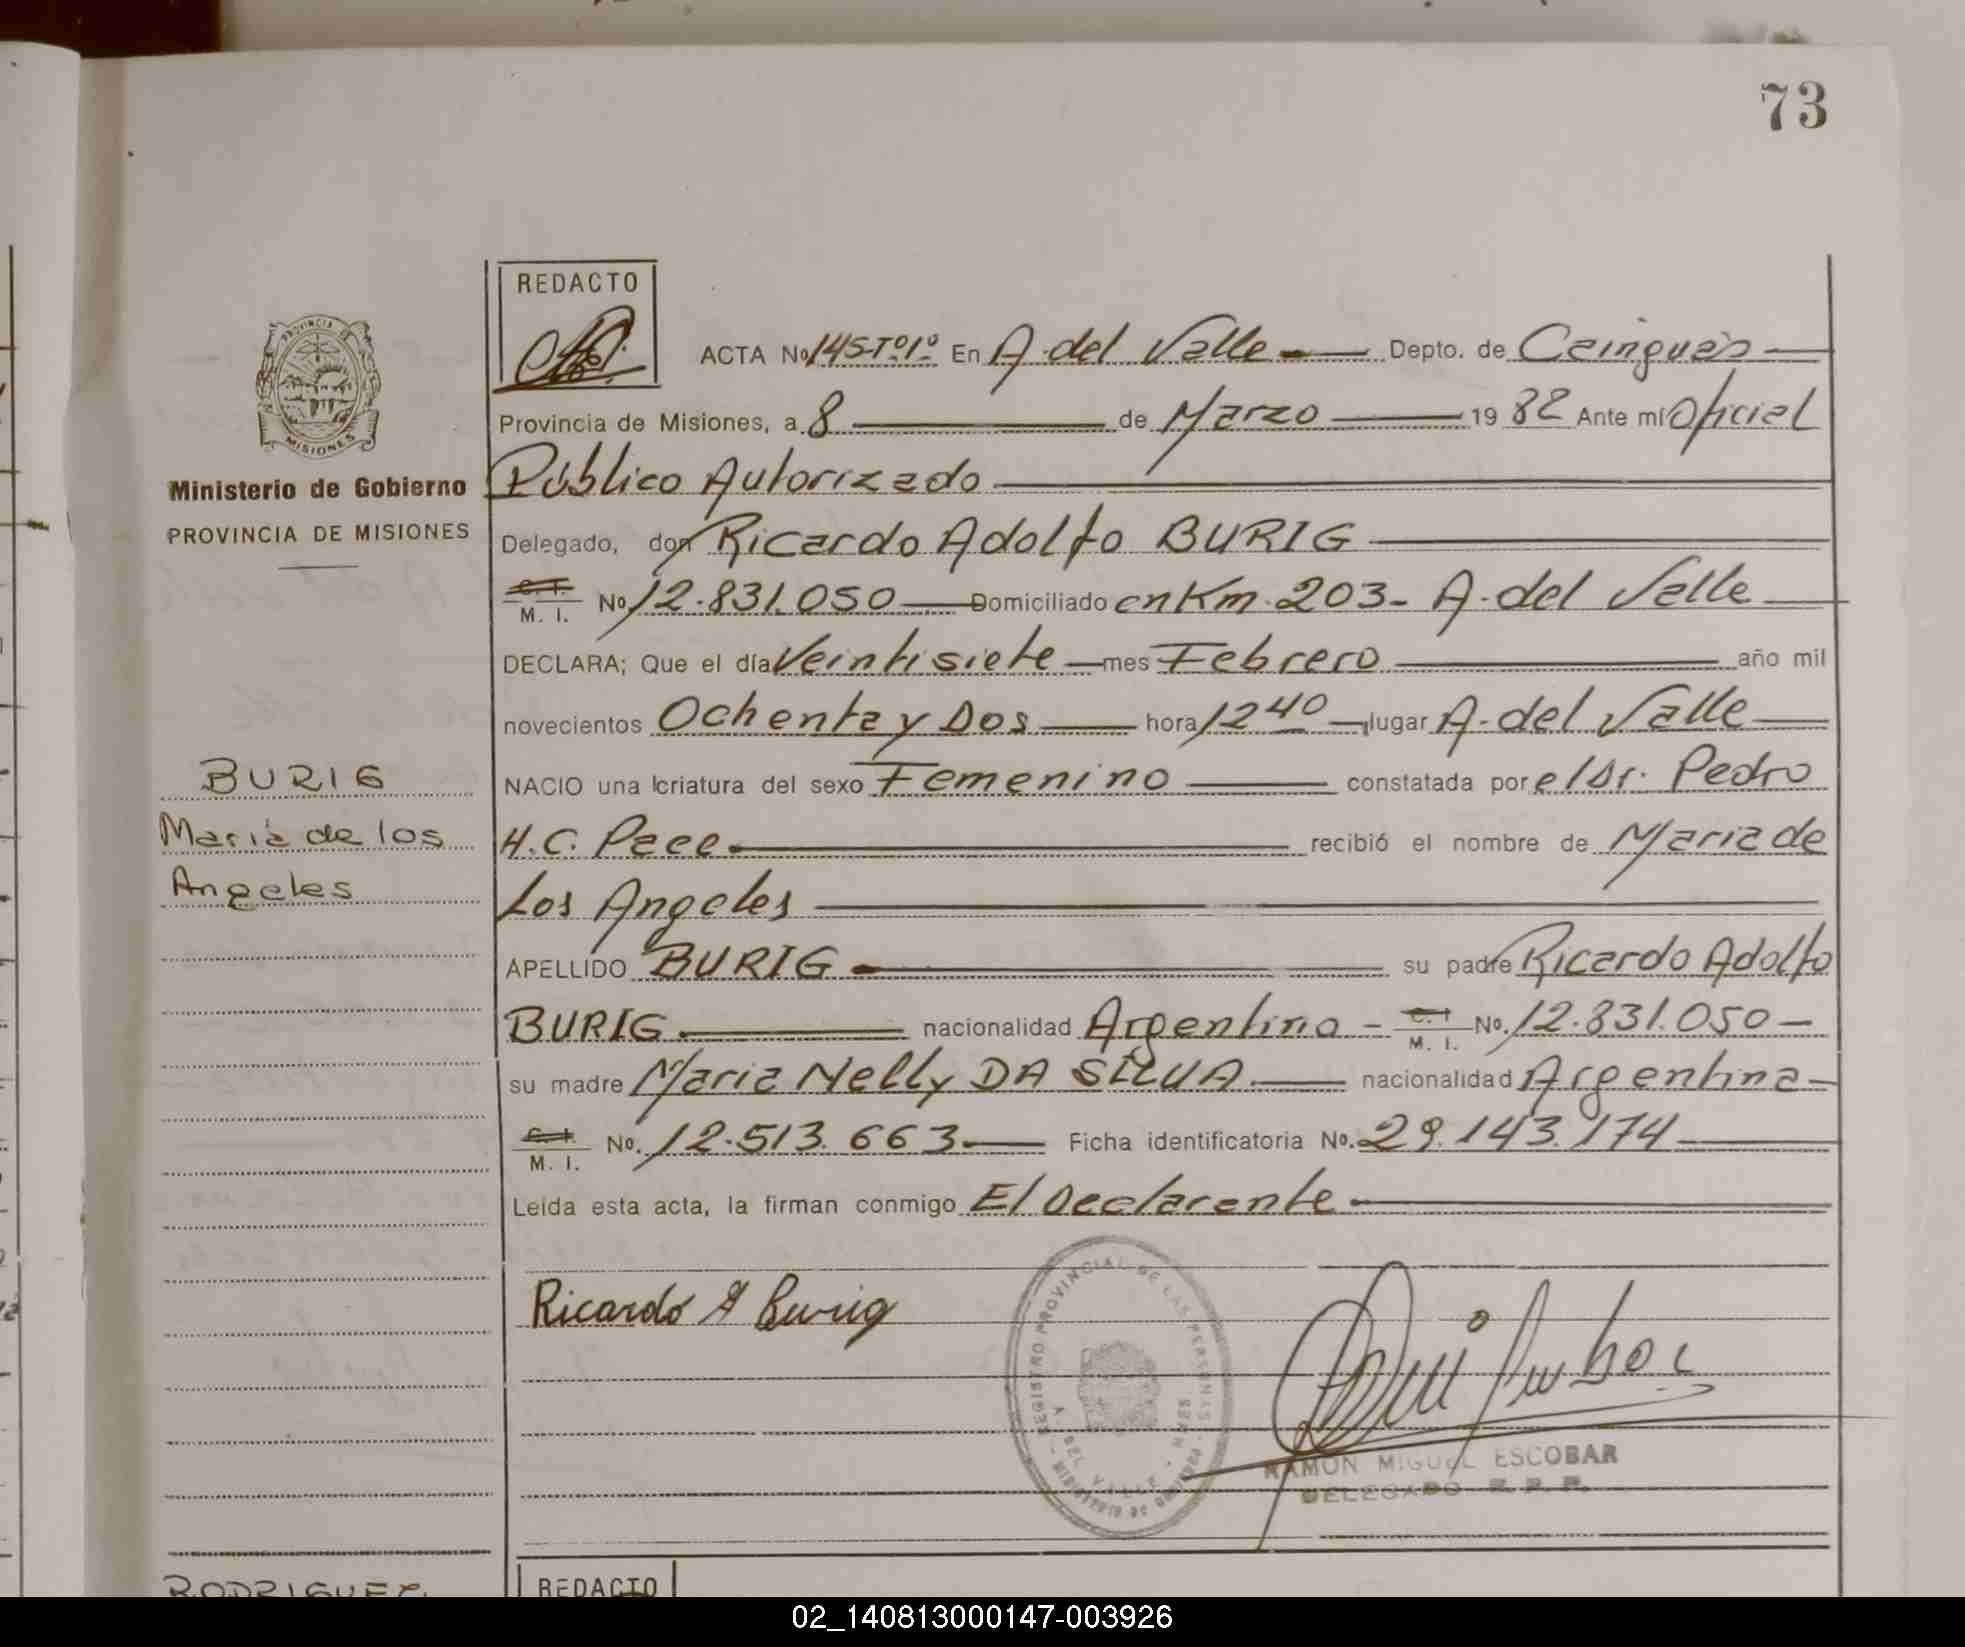 73
REDACTO
ACTA Nº 145 Tº1º En A. del Valle Depto. de Cainguás
Provincia de Misiones, a 8 de Marzo 1982 Ante mí Oficial
Público Autorizado
Delegado, don Ricardo Adolfo BURIG
C. I. M. I. Nº 12.831.050 Domiciliado en Km. 203 - A. del Valle
DECLARA; Que el día Veintisiete mes Febrero año mil
novecientos Ochenta y Dos hora 12 40 lugar A. del Valle
NACIO una criatura del sexo Femenino constatada por el Dr. Pedro
H.C. Pace recibió el nombre de María de
Los Angeles
APELLIDO BURIG su padre Ricardo Adolfo
BURIG nacionalidad Argentino - C. I. M. I. No. 12.831.050 -
su madre María Nelly DA SILVA nacionalidad Argentina
C. I. M. I. No. 12.513.663 Ficha identificatoria No. 29.143.174
Leída esta acta, la firman conmigo El Declarante
Ricardo A Burig
PROVINCIA DE
MISIONES
Ministerio de Gobierno
PROVINCIA DE MISIONES
BURIG
María de los
Angeles
REGISTRO PROVINCIAL DE LAS PERSONAS
A. DEL VALLE - MNES
MINISTERIO DE GOBIERNO
RAMON MIGUEL ESCOBAR
DELEGADO R. P. P.
RODRIGUEZ
REDACTO
02_140813000147-003926